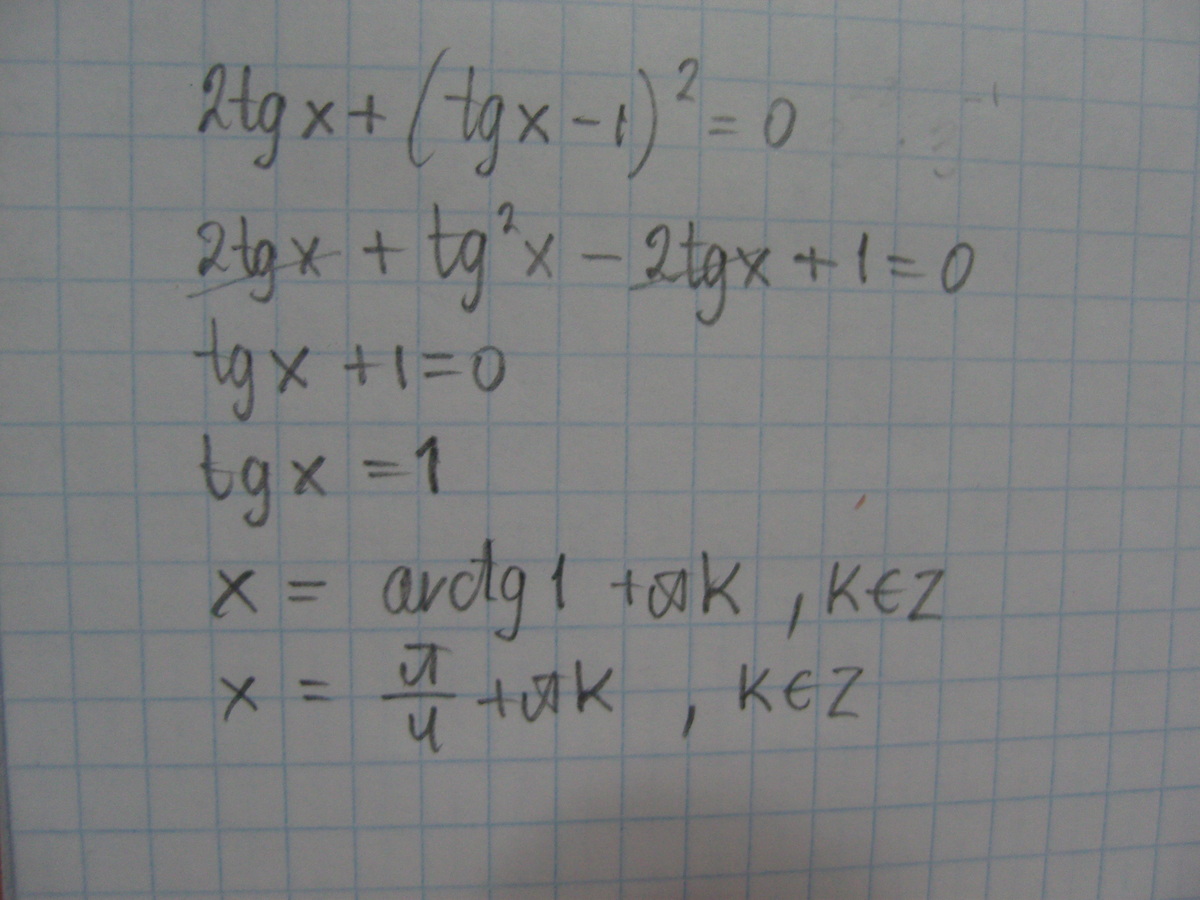 2tg x + (tg x - 1)² = 0
2tgx + tg²x - 2tgx + 1 = 0
tg x + 1 = 0
tg x = 1
x = arctg 1 + πk , k ∈ Z
x = π/4 + πk , k ∈ Z